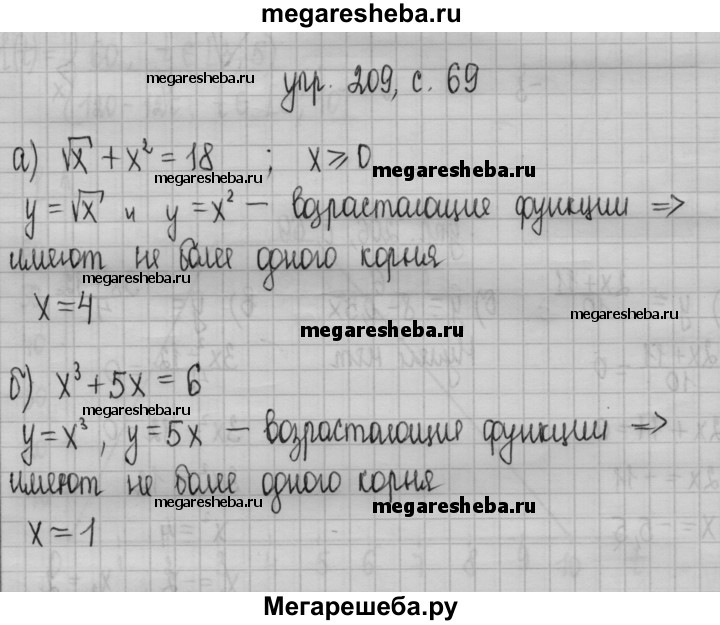 megaresheba.ru
megaresheba.ru
упр. 209, с. 69
а) √x + x² = 18 ; x ⩾ 0
megaresheba.ru
megaresheba.ru
y = √x и y = x² – возрастающие функции =>
имеют не более одного корня
megaresheba.ru
x = 4
megaresheba.ru
megaresheba.ru
б) x³ + 5x = 6
megaresheba.ru
y = x³, y = 5x – возрастающие функции =>
имеют не более одного корня
megaresheba.ru
megaresheba.ru
x = 1
Мегарешеба.ру